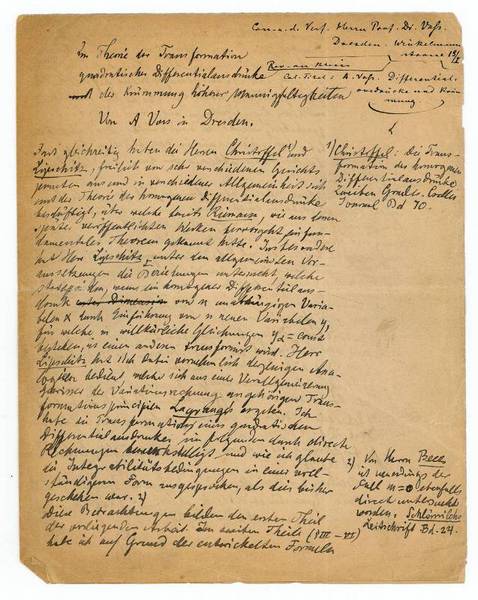 Corr. a. d. Verf. Herrn Prof. Dr. Voss.
Dresden. Winkelmann
strasse
Zur Theorie der Transformation
quadratischer Differentialausdrücke
Rev. an Klein
Col. Titel: A. Voss. Differential-
ausdrücke und Krüm-
mung
und der Krümmung höherer Mannigfaltigkeiten
Von A Voss in Dresden.
Fast gleichzeitig haben die Herren Christoffel¹ und
Lipschitz, freilich von sehr verschiedenen Gesichts
punkten aus und in verschiedener Allgemeinheit sich
mit der Theorie der homogenen Differentialausdrücke
beschäftigt, über welche bereits Riemann, wie aus dessen
später veröffentlichten Werken hervorgeht ein fun-
damentales Theorem gekannt hatte. Insbesondere
hat Herr Lipschitz unter den allgemeinsten Vor-
aussetzungen die Beziehungen untersucht, welche
stattfinden, wenn ein homogener Differentialaus-
druck von n unabhängigen Varia-
belen x durch Einführung von n neuen Variabelen y,
für welche m willkürliche Gleichungen y = const
bestehen, in einen anderen transformirt wird. Herr
Lipschitz hat sich dabei vornehmlich derjenigen Ana-
logieen bedient, welche sich aus einer Verallgemeinerung
gewisser der Variationsrechnung angehörigen Trans-
formationsprincipien Lagranges ergeben. Ich
habe die Transformation eines quadratischen
Differentialausdruckes im folgenden durch directe
Rechnungen und wie ich glaube
die Integrabilitätsbedingungen in einer voll-
ständigeren Form ausgesprochen, als dies bisher
geschehen war. 2)
Diese Betrachtungen bilden den ersten Theil
der vorliegenden Arbeit. Im zweiten Theile (VIII – XI)
habe ich auf Grund der entwickelten Formeln
1) Christoffel: Die Trans-
formation der homogenen
Differentialausdrücke
zweiten Grades. Crelles
Journal Bd 70.
2) Von Herrn Beez
ist neuerdings der
Fall m=0 ebenfalls
direct untersucht
worden. Schlömilchs
Zeitschrift Bd. 24.